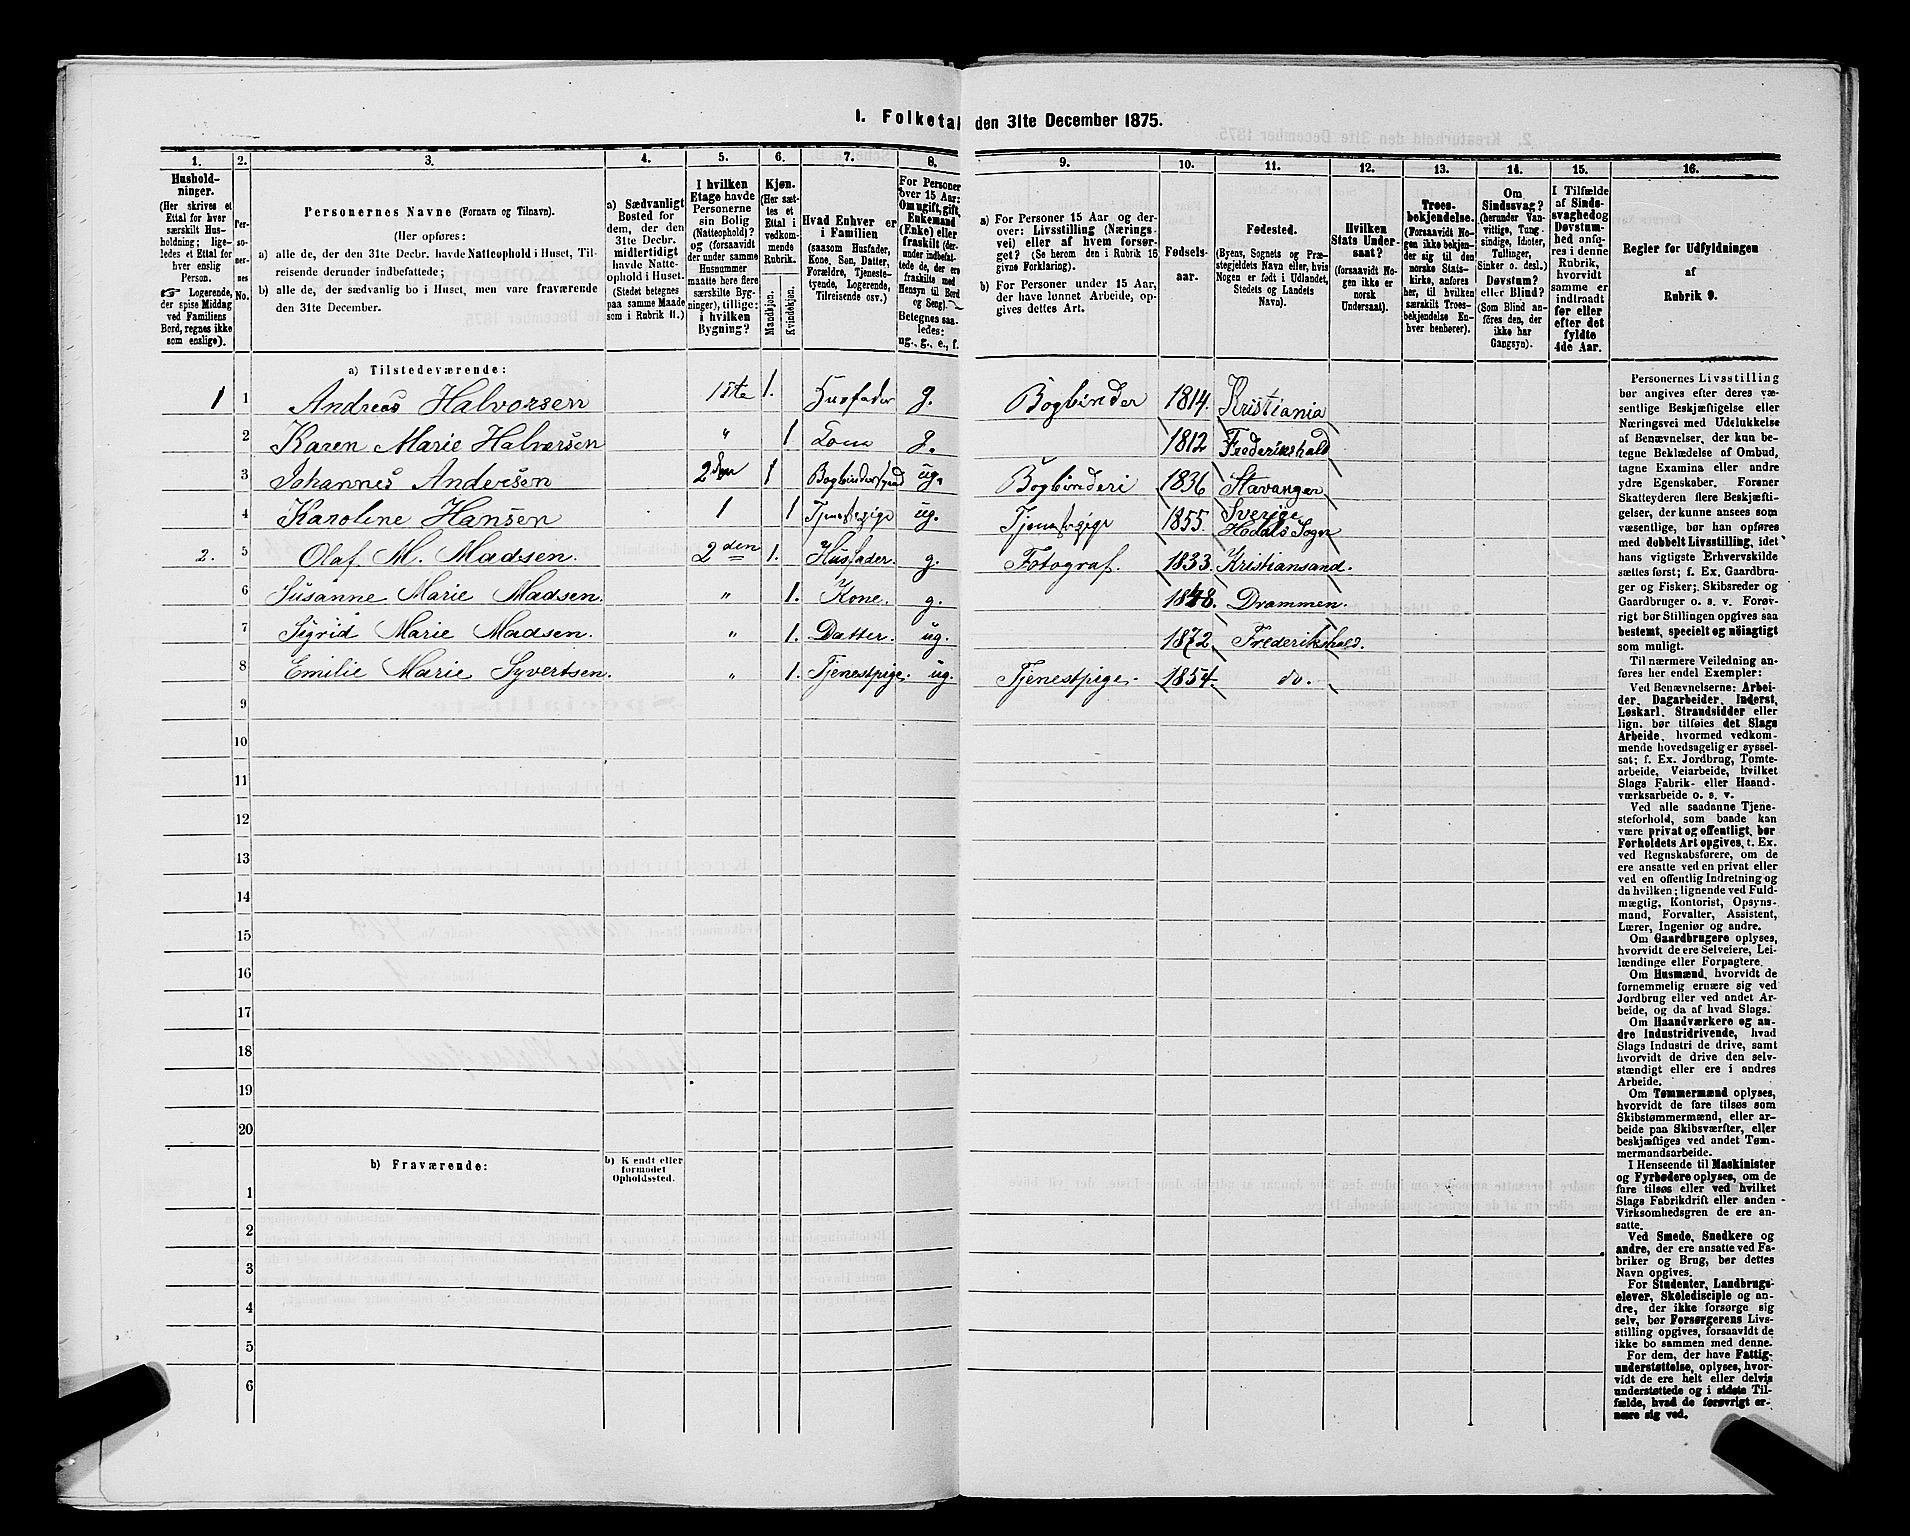 1. Folketal den 31te December 1875.
1. 2. 3. 4. 5. 6. 7. 8. 9. 10. 11. 12. 13. 14. 15. 16.
Hushold-
ninger.
(Her skrives et
Ettal for hver
særskilt Hus-
holdning; lige-
ledes et Ettal for
hver enslig
Person.
☞ Logerende,
der spise Middag
ved Familiens
Bord, regnes ikke
som enslige).
Per-
so-
ner-
nes
No.
Personernes Navne (Fornavn og Tilnavn).
(Her opføres:
a) alle de, der den 31te Decbr. havde Natteophold i Huset, Til-
reisende derunder indbefattede;
b) alle de, der sædvanlig bo i Huset, men vare fraværende
den 31te December.
a) Sædvanligt
Bosted for
dem, der den
31te Decbr.
midlertidigt
havde Natte-
ophold i Huset.
(Stedet betegnes
paa samme Maade
som i Rubrik 11.)
I hvilken
Etage havde
Personerne
sin Bolig
(Natteophold)?
og (forsaavidt
der under samme
Husnummer
maatte høre flere
særskilte Byg-
ninger), tillige:
i hvilken
Bygning?
Kjøn.
(Her sæt-
tes et
Ettal i
vedkom-
mende
Rubrik.
Mandkjøn.
Kvindekjøn.
Hvad Enhver er
i Familien
(saasom Husfader,
Kone, Søn, Datter,
Forældre, Tjeneste-
tyende, Logerende,
Tilreisende osv.)
For Personer
over 15 Aar:
Om ugift, gift,
Enkemand
(Enke) eller
fraskilt (der-
under indbefat-
tede de, der ere
fraskilte med
Hensyn til Bord
og Seng).
Betegnes saa-
ledes:
ug., g., e., f.
a) For Personer 15 Aar og der-
over: Livsstilling (Nærings-
vei) eller af hvem forsør-
get? (Se herom den i Rubrik 16
givne Forklaring).
b) For Personer under 15 Aar,
der have lønnet Arbeide, op-
gives dettes Art.
Fødsels-
aar.
Fødested.
(Byens, Sognets og Præ-
stegjeldets Navn eller, hvis
Nogen er født i Udlandet,
Stedets og Landets
Navn).
Hvilken
Stats Under-
saat?
(forsaavidt No-
gen ikke er
norsk
Undersaat).
Troes-
bekjendelse.
(Forsaavidt No-
gen ikke bekjen-
der sig til den
norske Stats-
kirke, anføres
her, til hvilken
særskilt Troes-
bekjendelse En-
hver henhører).
Om
Sindssvag?
(herunder Van-
vittige, Tung-
sindige, Idioter,
Tullinger,
Sinker o. desl.)
Døvstum?
eller Blind?
(Som Blind an-
føres den, der
ikke har
Gangsyn).
I Tilfælde
af Sinds-
svaghed og
Døvstum-
hed anfø-
res i denne
Rubrik,
hvorvidt
samme er
indtraadt
før eller
efter det
fyldte
4de Aar.
Regler for Udfyldningen
af
Rubrik 9.
a) Tilstedeværende:
1 1 Andreas Halvorsen 1ste 1. Husfader g. Bogbinder 1814. Kristiania
2 Karen Marie Halvorsen " 1 Kone g. 1812 Frederikshald
3 Johannes Andersen 2den 1 Bogbindersvend ug. Bogbinderi 1836 Stavanger
4 Karoline Hansen 1 1 Tjenestepige ug. Tjenestepige 1855. Sverige Sogn
2. 5 Olaf M. Madsen. 2den 1. Husfader. g. Fotograf. 1833. Kristiansand.
6 Susanne Marie Madsen. " 1. Kone. g. 1848. Drammen.
7 Sigrid Marie Madsen. " 1. Datter. ug. 1872. Frederikshald.
8 Emilie Marie Syvertsen. " 1. Tjenestpige. ug. Tjenestpige. 1854. do.
9
10
11
12
13
14
15
16
17
18
19
20
b) Fraværende:
b) Kendt eller
formodet
Opholdssted.
1
2
3
4
5
6
Personernes Livsstilling
bør angives efter deres væ-
sentlige Beskjæftigelse eller
Næringsvei med Udelukkelse
af Benævnelser, der kun be-
tegne Beklædelse af Ombud,
tagne Examina eller andre
ydre Egenskaber. Forener
Skatteyderen flere Beskjæfti-
gelser, der kunne ansees som
væsentlige, bør han opføres
med dobbelt Livsstilling, idet
hans vigtigste Erhvervskilde
sættes først; f. Ex. Gaardbru-
ger og Fisker; Skibsreder og
Gaardbruger o. s. v. Forøv-
rigt bør Stillingen opgives saa
bestemt, specielt og nøiagtigt
som muligt.
Til nærmere Veiledning an-
føres her endel Exempler:
Ved Benævnelserne: Arbei-
der, Dagarbeider, Inderst,
Løskarl, Strandsidder eller
lign. bør tilføies det Slags
Arbeide, hvormed vedkom-
mende hovedsagelig er syssel-
sat; f. Ex. Jordbrug, Tomte-
arbeide, Veiarbeide, hvilket
Slags Fabrik- eller Haand-
værksarbeide o. s. v.
Ved alle saadanne Tjene-
steforhold, som baade kan
være privat og offentligt, bør
Forholdets Art opgives, t. Ex.
ved Regnskabsførere, om de
ere ansatte ved en privat eller
ved en offentlig Indretning og
da hvilken; lignende ved Fuld-
mægtig, Kontorist, Opsyns-
mand, Forvalter, Assistent,
Lærer, Ingeniør og andre.
Om Gaardbrugere oplyses,
hvorvidt de ere Selveiere, Lei-
lændinge eller Forpagtere.
Om Husmænd, hvorvidt de
fornemmelig ernære sig ved
Jordbrug eller ved andet Ar-
beide, og da af hvad Slags.
Om Haandværkere og an-
dre Industridrivende, hvad
Slags Industri de drive, samt
hvorvidt de drive den selv-
stændigt eller ere i andres
Arbeide.
Om Tømmermænd oplyses,
hvorvidt de fare tilsøs som
Skibstømmermænd, eller ar-
beide paa Skibsværfter, eller
beskjæftiges ved andet Tøm-
mermandsarbeide.
I Henseende til Maskinister
og Fyrbødere oplyses, om de
fare tilsøs eller ved hvilket
Slags Fabrikdrift eller anden
Virksomhedsgren de ere an-
satte.
Ved Smede, Snedkere og
andre, der ere ansatte ved Fa-
briker og Brug, bør dettes
Navn opgives.
For Studenter, Landbrugs-
elever, Skoledisciple og an-
dre, der ikke forsørge sig
selv, bør Forsørgerens Livs-
stilling opgives, forsaavidt de
ikke bo sammen med denne.
For dem, der have Fattig-
understøttelse, oplyses, hvor-
vidt de ere helt eller delvis
understøttede og i sidste Til-
fælde, hvad de forøvrigt er-
nære sig ved.